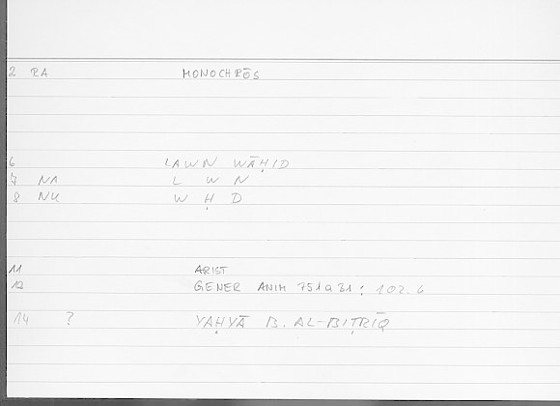 2 RA MONOCHRŌS
6 LAWN WĀḤID
7 NA L W N
8 NU W Ḥ D
11 ARIST
12 GENER ANIM 751a31: 102.6
14 ? YAḤYĀ B. AL-BIṬRĪQ